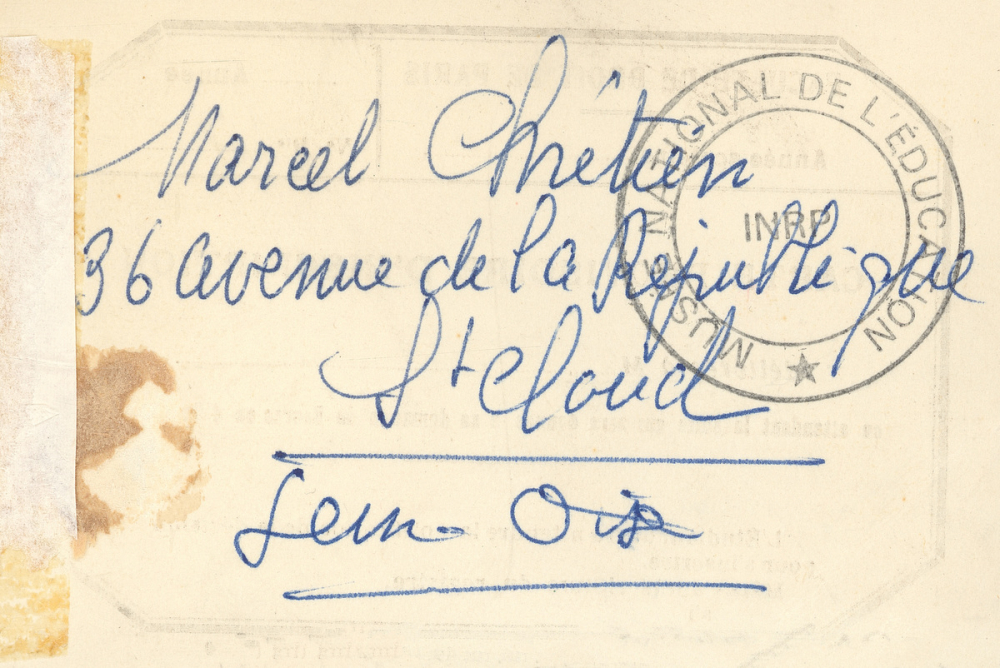 Marcel Chrétien
36 avenue de la République
St Cloud
Seine Oise
MUSÉE NATIONAL DE L'ÉDUCATION
INRP